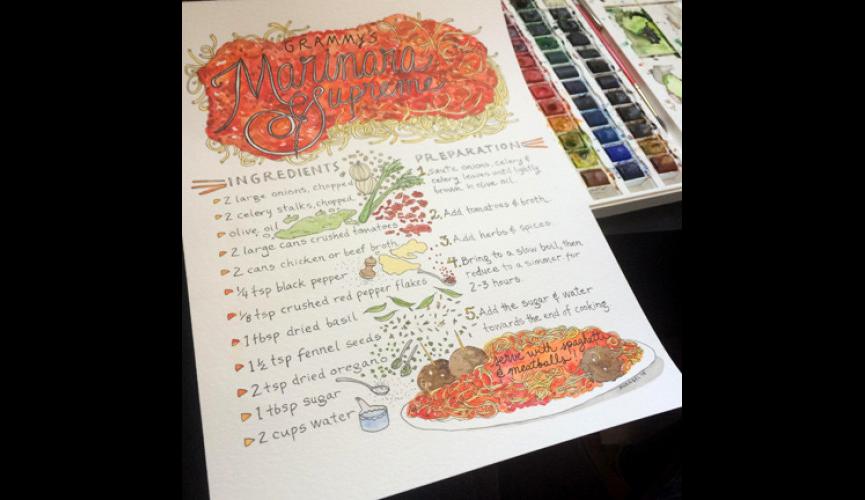 GRAMMY'S
Marinara
Supreme
INGREDIENTS
2 large onions, chopped
2 celery stalks, chopped
olive oil
2 large cans crushed tomatoes
2 cans chicken or beef broth
1/4 tsp black pepper
1/8 tsp crushed red pepper flakes
1 tbsp dried basil
1 1/2 tsp fennel seeds
2 tsp dried oregano
1 tbsp sugar
2 cups water
PREPARATION
1. saute onions, celery &
celery leaves until lightly
brown in olive oil.
2. Add tomatoes & broth.
3. Add herbs & spices.
4. Bring to a slow boil, then
reduce to a simmer for
2-3 hours.
5. Add the sugar & water
towards the end of cooking.
serve with spaghetti
& meatballs